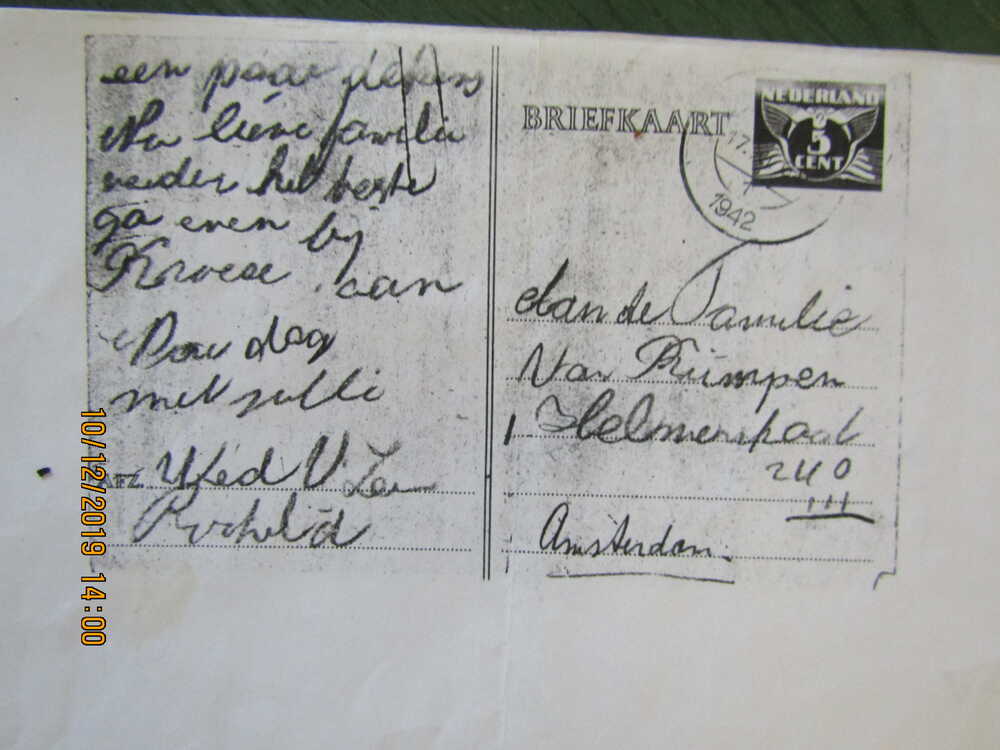 een paar dekens
Nu lieve familie
verder het beste
ga even bij
Kroese aan
Nou dag
met jullie
AFZ. Wed V
BRIEFKAART
NEDERLAND
5
CENT
17.
1942
Aan de Familie
Van Kümpen
Helmerspad
240
III
Amsterdam.
10/12/2019 14:00